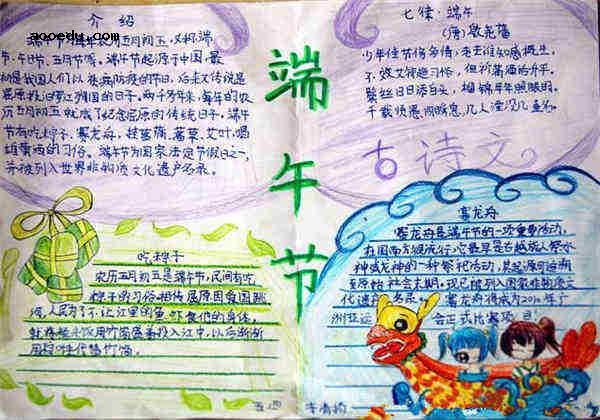 aooedu.com
介绍
端午节为每年农历五月初五,又称端
午节、五月节等。端午节起源于中国,最
初是我国人们以祛病防疫的节日,后来又传说是
屈原投汨罗江殉国的日子。两千多年来,每年的农
历五月初五就成了纪念屈原的传统日子。端午
节有吃粽子,赛龙舟,挂菖蒲,蒿草,艾叶,喝
雄黄酒的习俗。端午节为国家法定节假日之一,
并被列入世界非物质文化遗产名录。
七律·端午
(唐)殷尧藩
少年佳节倍多情,老去谁知感慨生,
不效艾符趋习俗,但祈蒲酒话升平。
鬓丝日日添白头,榴锦年年照眼明。
千载贤愚同瞬息,几人湮没几垂名。
古诗文
端午节
吃粽子
农历五月初五是端午节,民间有吃
粽子的习俗相传屈原因爱国跳
河,人民为了不让江里的鱼虾食他的身体,
就将糯米饭用竹筒盛着投入江中,以后渐渐
用粽叶代替竹筒。
赛龙舟
赛龙舟是端午节的一项重要活动,
在国南方很流行,它最早是古越族人祭水
神或龙神的一种祭祀活动,其起源可追溯
至原始社会末期。现已被列入国家非物质文
化遗产名录。赛龙舟被成为2010年广
州亚运会正式比赛项目!
五四